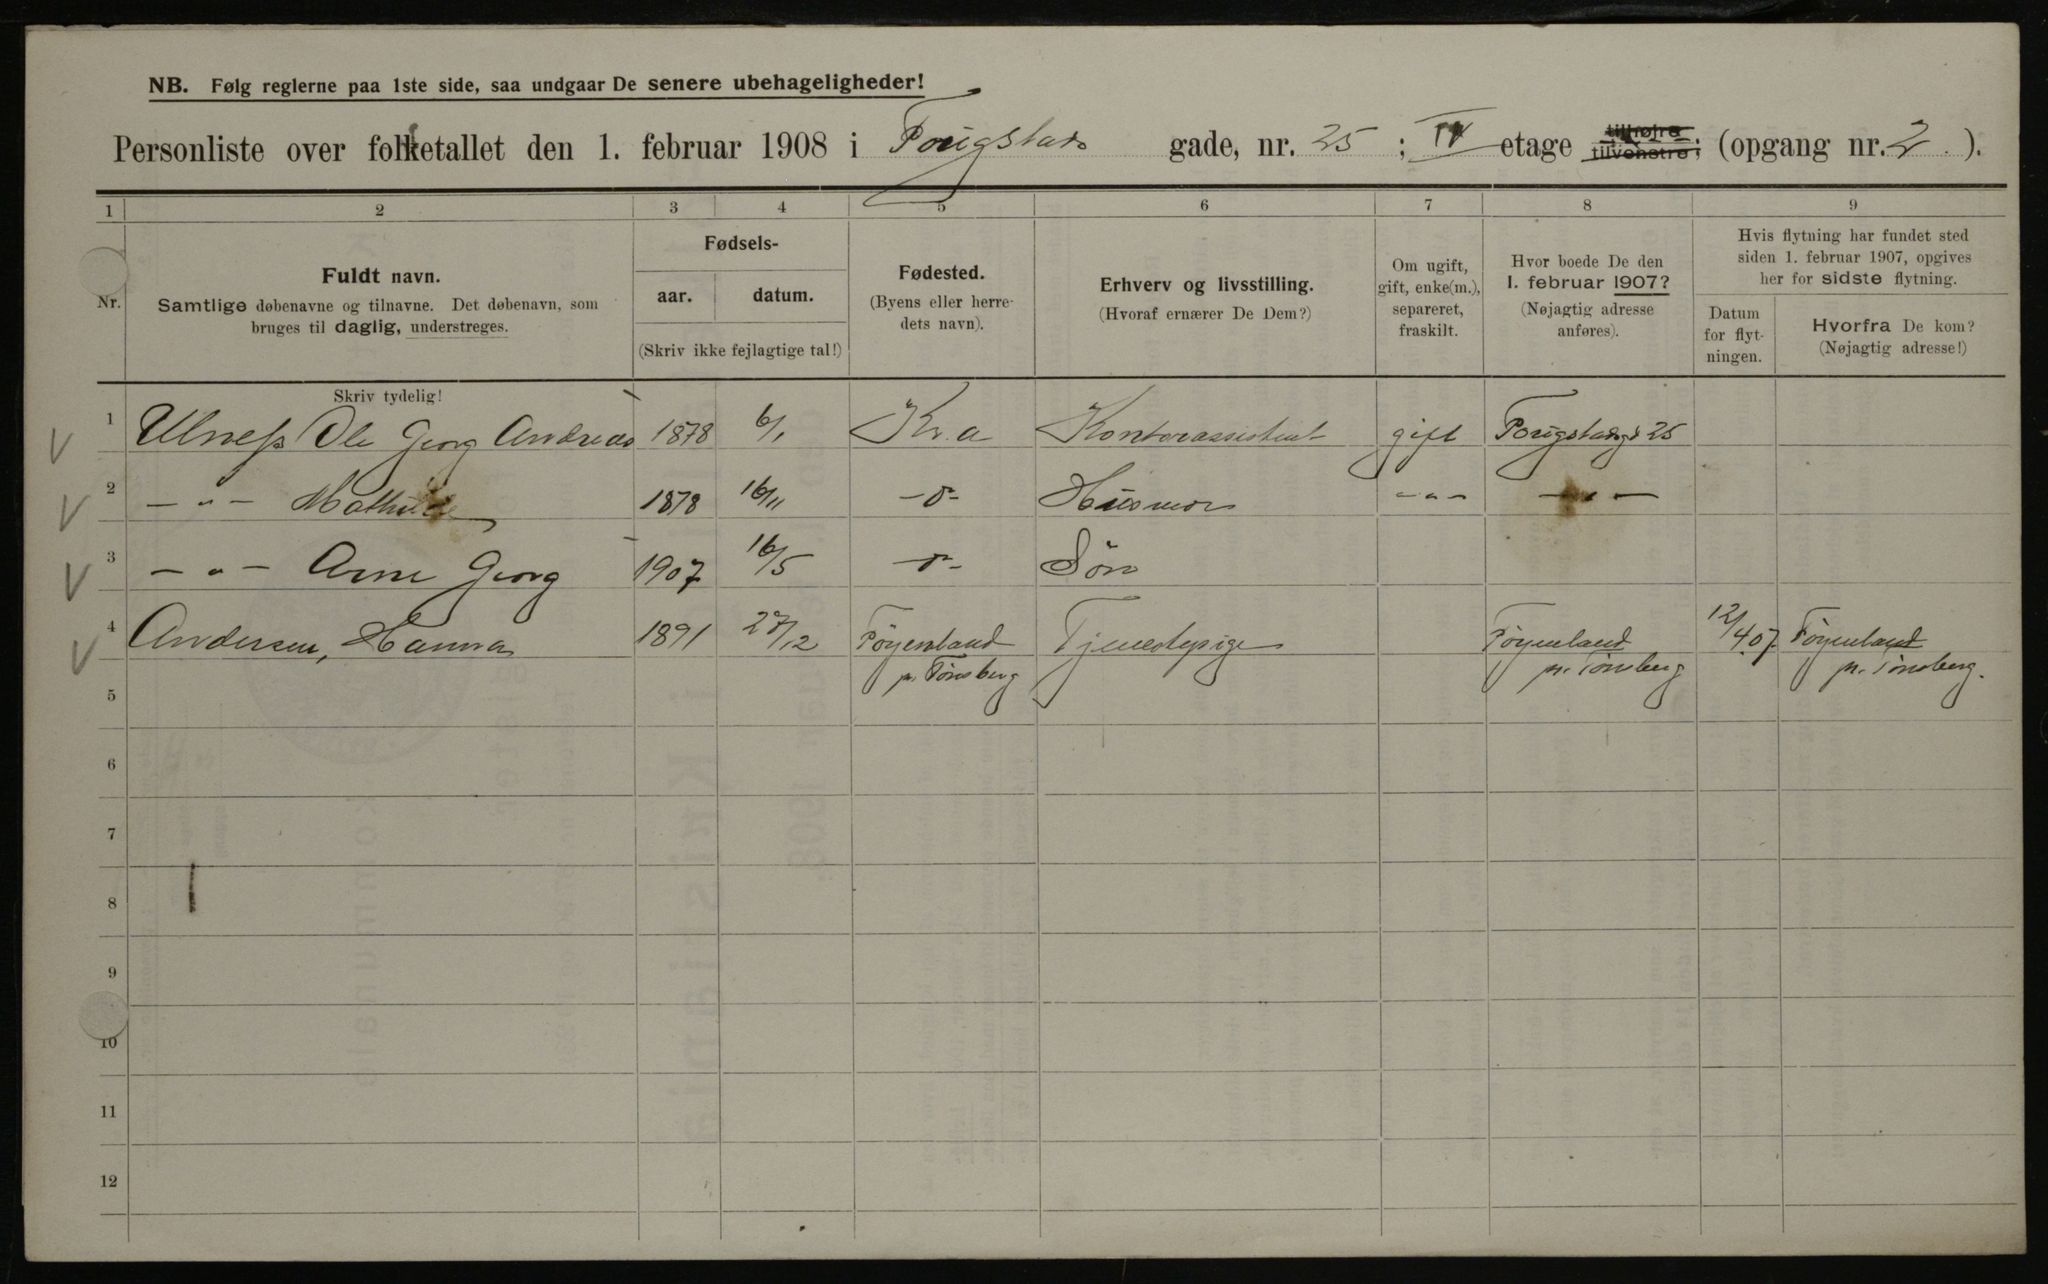 NB. Følg reglerne paa 1ste side, saa undgaar De senere ubehageligheder!
Personliste over folketallet den 1. februar 1908 i Fougstads gade, nr. 25 ; IV etage tilhøire tilvenstre; (opgang nr. 2 ).
1 2 3 4 5 6 7 8 9
Nr.
Fuldt navn.
Samtlige døbenavne og tilnavne. Det døbenavn, som
bruges til daglig, understreges.
Fødsels-
aar. datum.
(Skriv ikke fejlagtige tal!)
Fødested.
(Byens eller herre-
dets navn).
Erhverv og livsstilling.
(Hvoraf ernærer De Dem?)
Om ugift,
gift, enke(m.),
separeret,
fraskilt.
Hvor boede De den
1. februar 1907?
(Nøjagtig adresse
anføres).
Hvis flytning har fundet sted
siden 1. februar 1907, opgives
her for sidste flytning.
Datum
for flyt-
ningen.
Hvorfra De kom?
(Nøjagtig adresse!)
Skriv tydelig!
1 Ulness Ole Georg Andreas 1878 6/1 Kr.a Kontorassistent gift Fougstadsgt 25
2 - " - Mathilde 1878 16/11 -o- Husmor - " - - " -
3 - " - Arne Georg 1907 16/5 -o- Søn
4 Andersen, Hanna 1891 27/12 Föyenland Tjenestepige Föyenland 12/4 07. Föyenland
pr. Tönsberg pr. Tönsberg pr. Tönsberg.
5
6
7
8
9
10
11
12